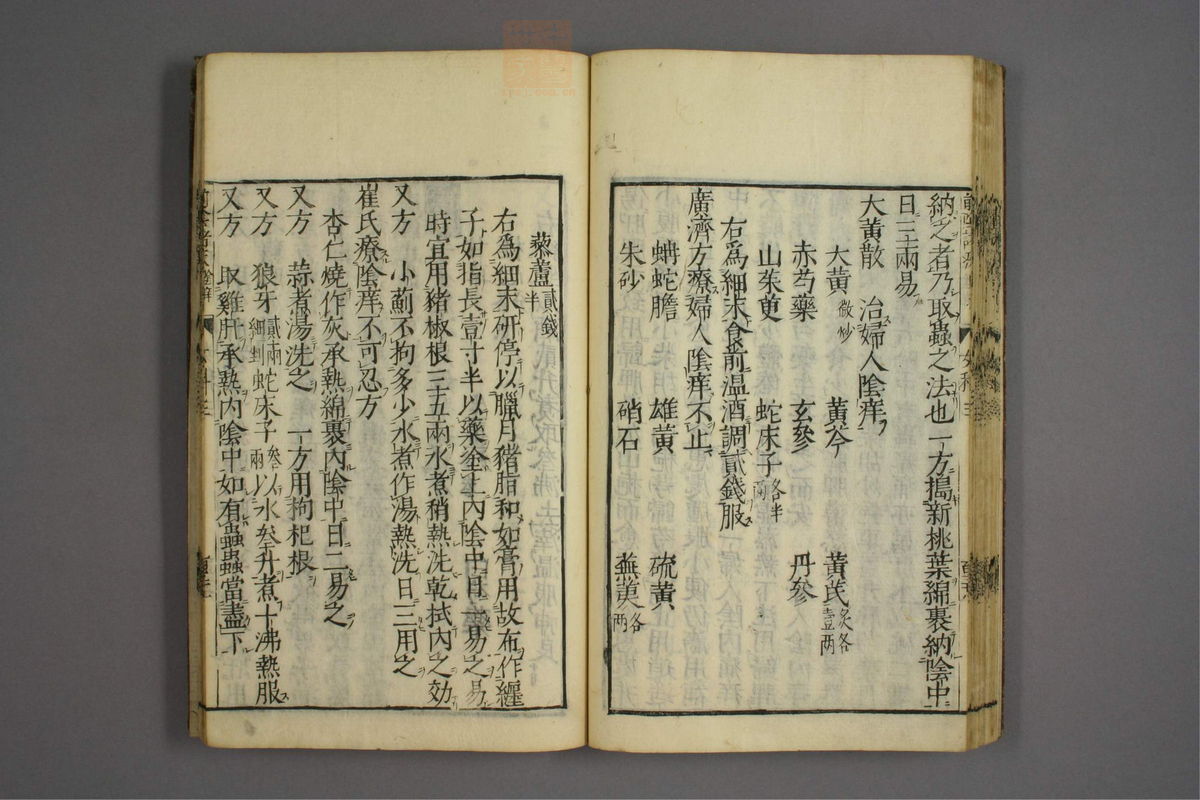 納之者乃取蟲之法也一方搗新桃葉綿裹納陰中
日三兩易
大黄散　治婦人陰痒
大黄微炒　黄芩　黄芪炙各壹兩
赤芍藥　玄參　丹參
山茱萸　蛇床子各半兩
右爲細末食前温酒調貳錢服
廣濟方療婦人陰痒不止
蚺蛇膽　雄黄　硫黄
朱砂　硝石　蕪荑各兩
藜蘆貳錢半
右爲細末研停以臘月猪脂和如膏用故布作纏
子如指長壹寸半以藥塗上内陰中日一易之易
時宜用猪椒根三五兩水煮稍熱洗乾拭内之効
又方　小薊不拘多少水煮作湯熱洗日三用之
崔氏療陰痒不可忍方
杏仁燒作灰承熱綿裹内陰中日二易之
又方　蒜煮湯洗之　一方用拘杞根
又方　狼牙貳兩細剉蛇床子叁兩以水叁升煮十沸熱服
又方　取雞肝承熱内陰中如有蟲蟲當盡下